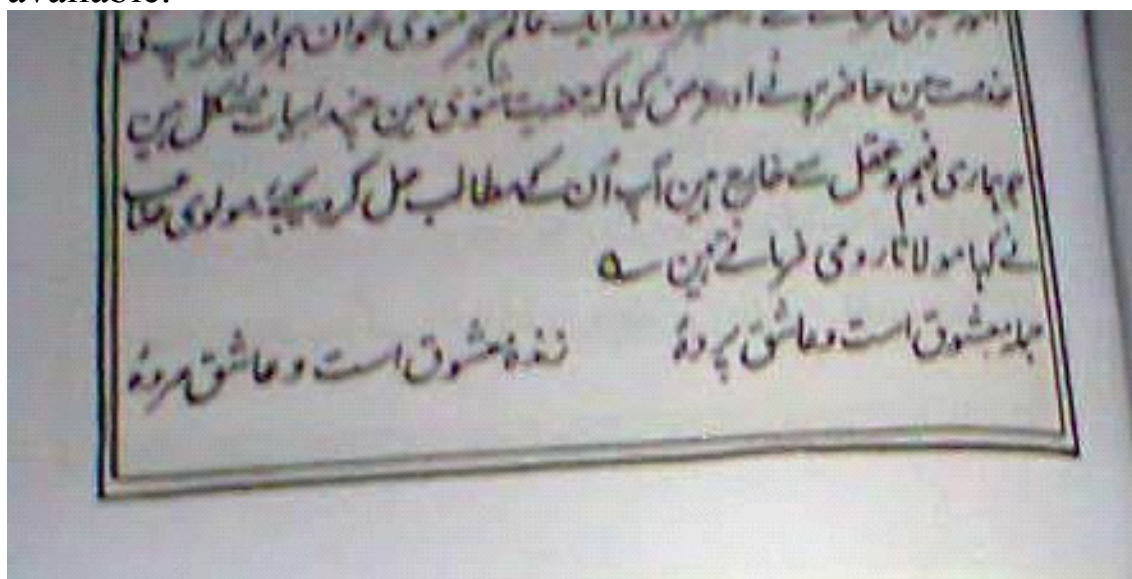 available.
ایک عالم
خدمت مین حاضر ہوئے اور عرض کیا کہ حضرت مثنوی مین چند ابیات مشکل ہین
جو ہماری فہم و عقل سے خارج ہین آپ اُن کے مطالب حل کر دیجئے مولوی صاحب
نے کہا مولانا رومی فرماتے ہین ؎
جملہ معشوق است و عاشق پردۂ زندہ معشوق است و عاشق مردۂ